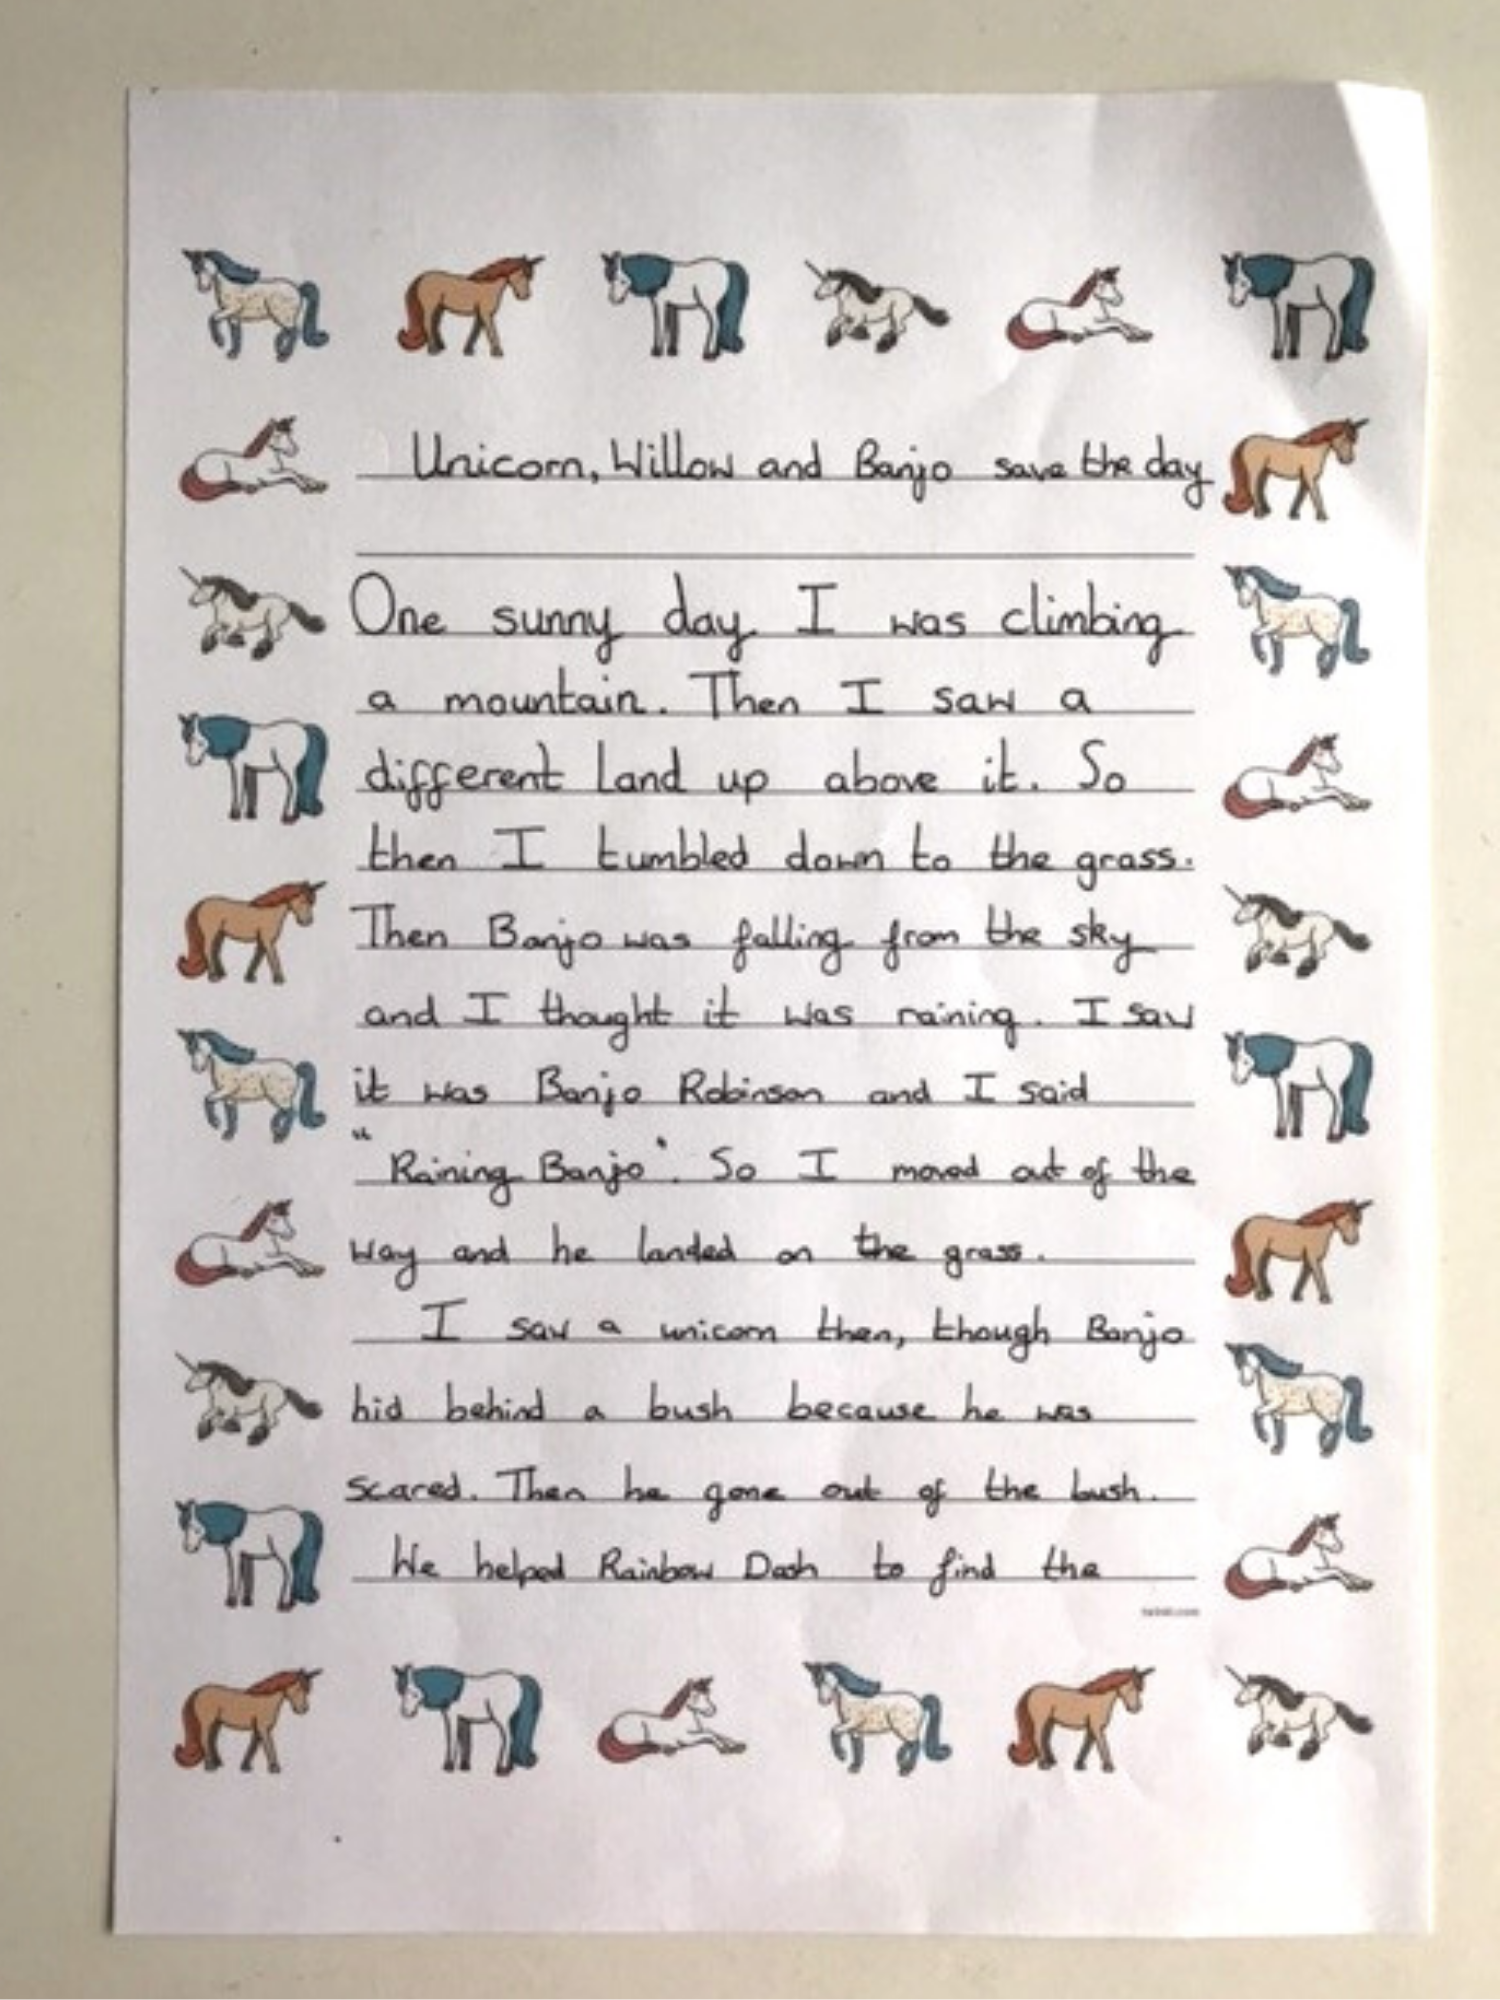 Unicorn, Willow and Banjo save the day
One sunny day I was climbing
a mountain. Then I saw a
different land up above it. So
then I tumbled down to the grass.
Then Banjo was falling from the sky
and I thought it was raining. I saw
it was Banjo Robinson and I said
"Raining Banjo". So I moved out of the
way and he landed on the grass.
I saw a unicorn then, though Banjo
hid behind a bush because he was
scared. Then he gone out of the bush.
We helped Rainbow Dash to find the
twinkl.com